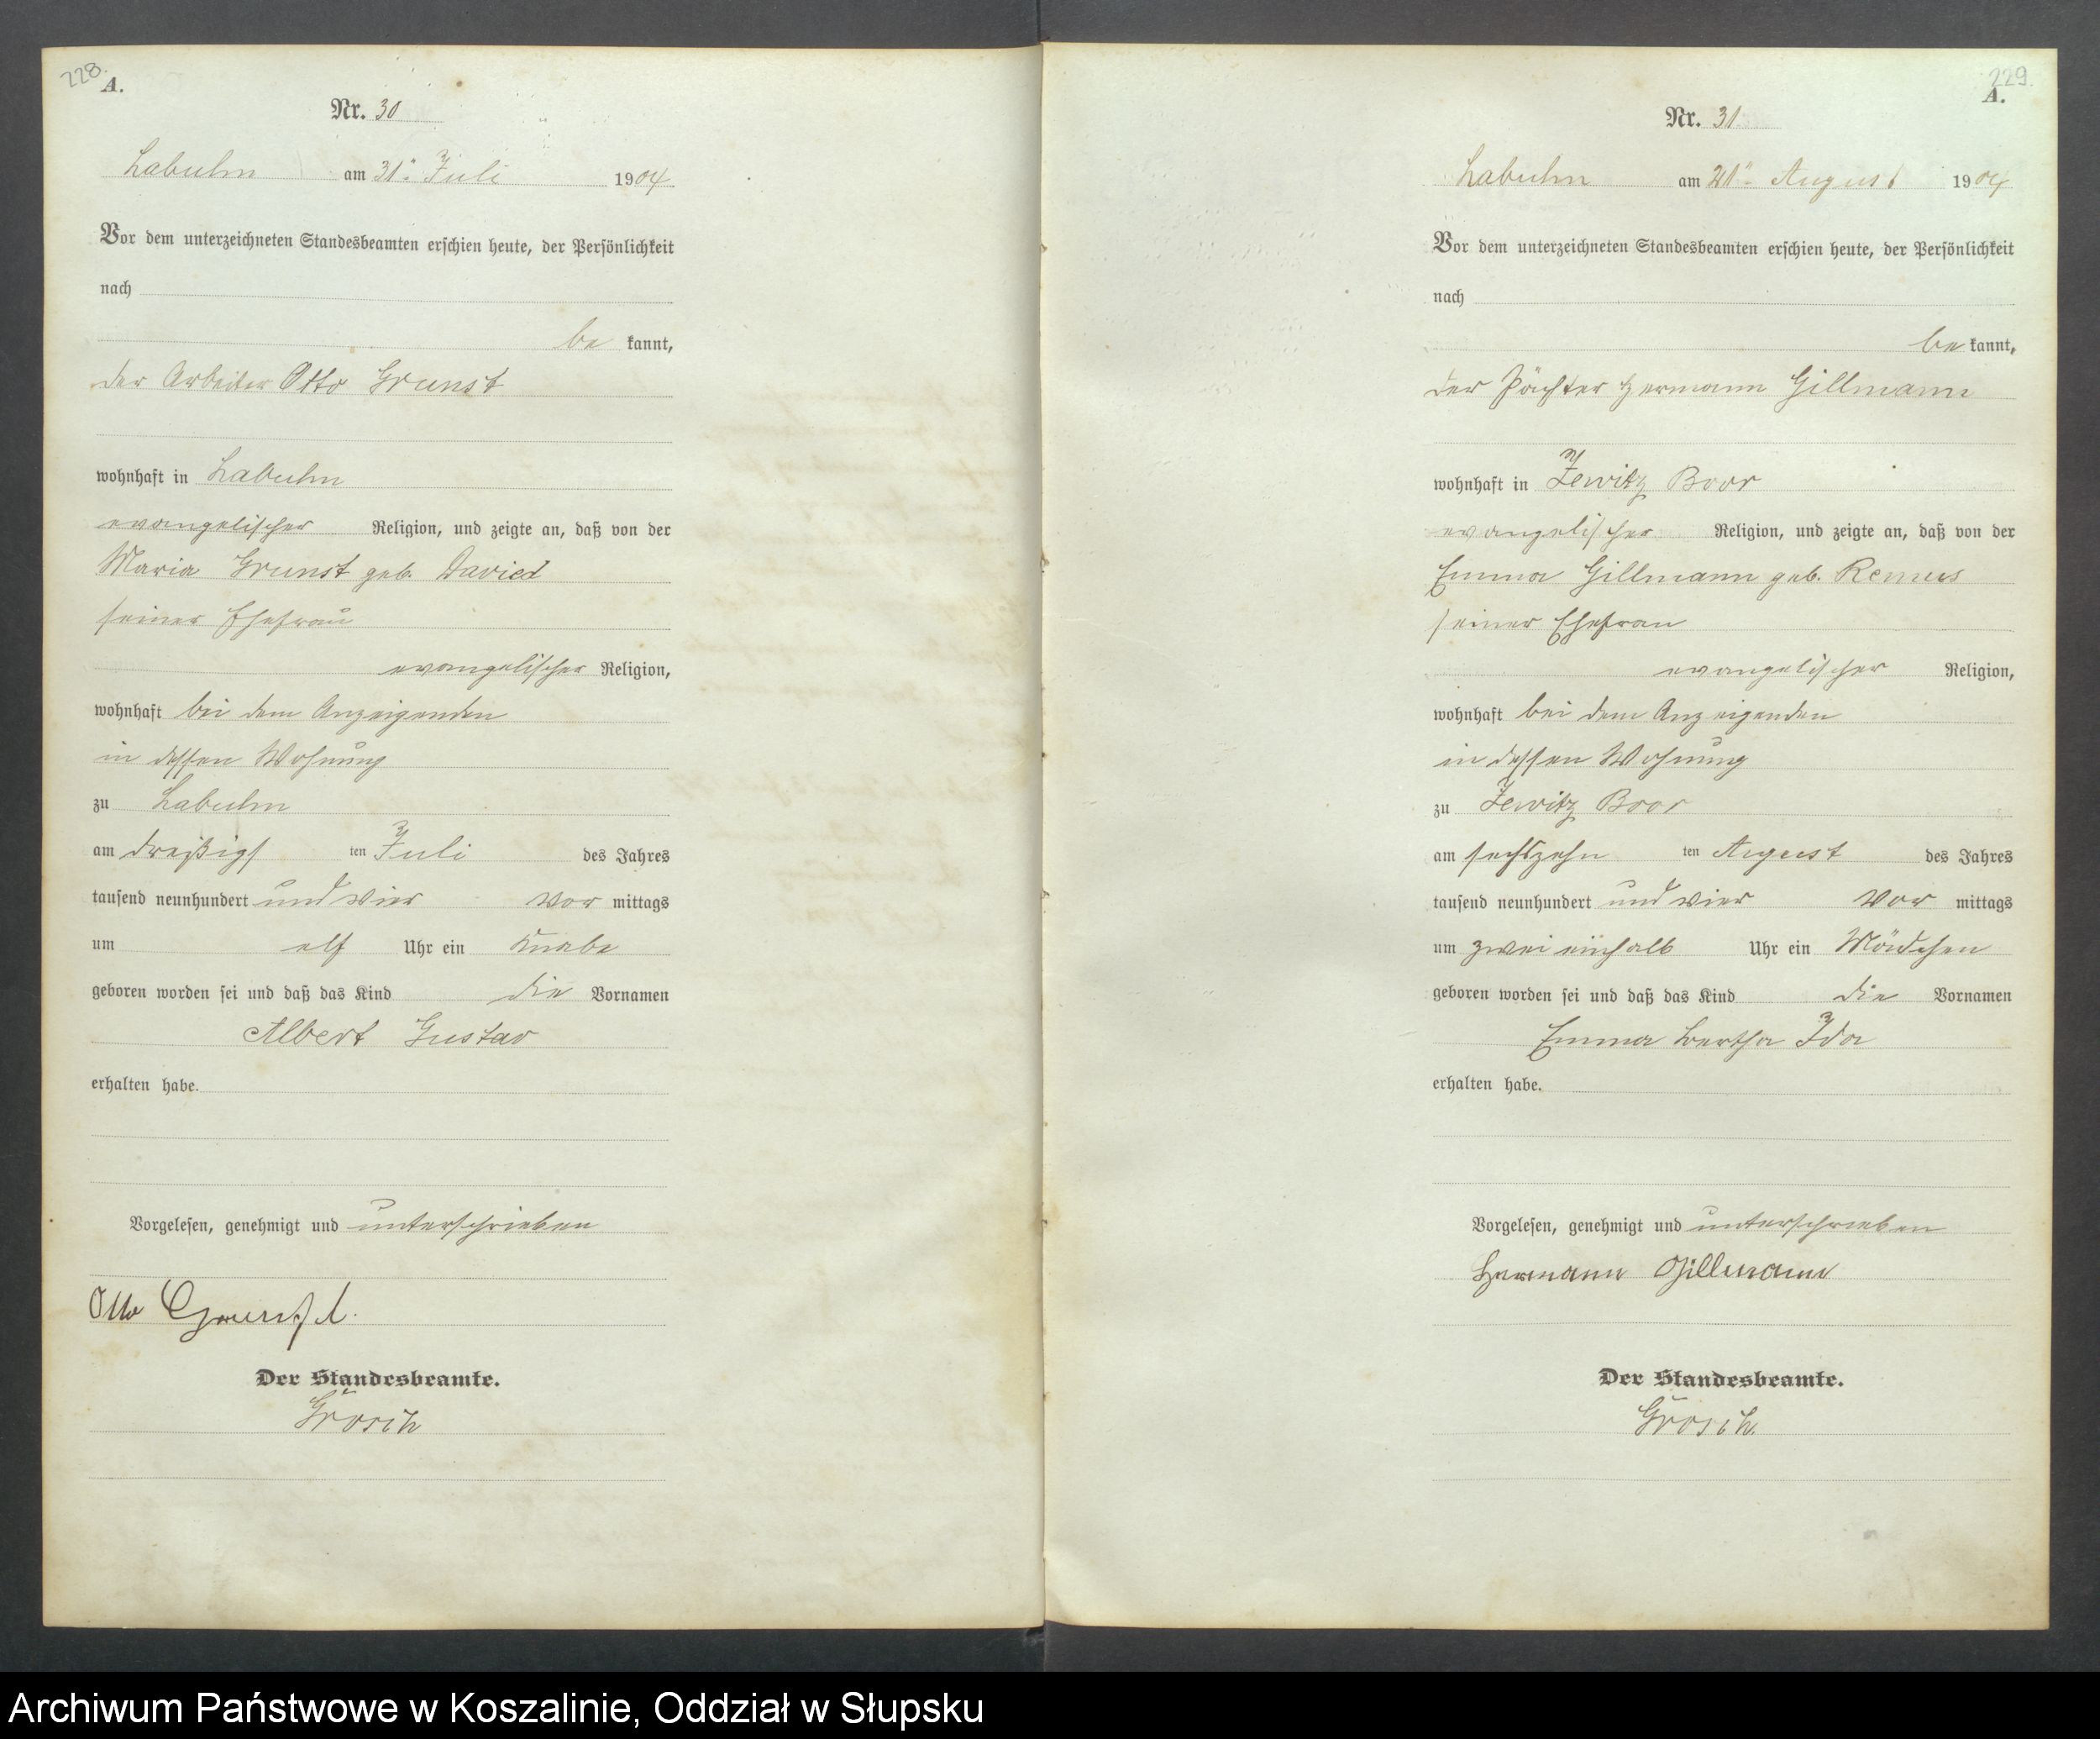 228.
A.
Nr. 30
Labuhn am 31ᵗ. Juli 1904
Vor dem unterzeichneten Standesbeamten erschien heute, der Persönlichkeit
nach
be kannt,
der Arbeiter Otto Grunst
wohnhaft in Labuhn
evangelischer Religion, und zeigte an, daß von der
Maria Grunst geb. Davied
seiner Ehefrau
evangelischer Religion,
wohnhaft bei dem Anzeigenden
in dessen Wohnung
zu Labuhn
am dreißigs ten Juli des Jahres
tausend neunhundert und vier Vor mittags
um elf Uhr ein Knabe
geboren worden sei und daß das Kind die Vornamen
Albert Gustav
erhalten habe.
Vorgelesen, genehmigt und unterschrieben
Otto Grunst.
Der Standesbeamte.
Grosch
229.
A.
Nr. 31
Labuhn am 21ᵗ. August 1904
Vor dem unterzeichneten Standesbeamten erschien heute, der Persönlichkeit
nach
be kannt,
der Pächter Hermann Gillmann
wohnhaft in Zewitz Boor
evangelischer Religion, und zeigte an, daß von der
Emma Gillmann geb. Remus
seiner Ehefrau
evangelischer Religion,
wohnhaft bei dem Anzeigenden
in dessen Wohnung
zu Zewitz Boor
am sechszehn ten August des Jahres
tausend neunhundert und vier Vor mittags
um zwei einhalb Uhr ein Mädchen
geboren worden sei und daß das Kind die Vornamen
Emma Bertha Ida
erhalten habe.
Vorgelesen, genehmigt und unterschrieben
Hermann Gillmann
Der Standesbeamte.
Grosch.
Archiwum Państwowe w Koszalinie, Oddział w Słupsku